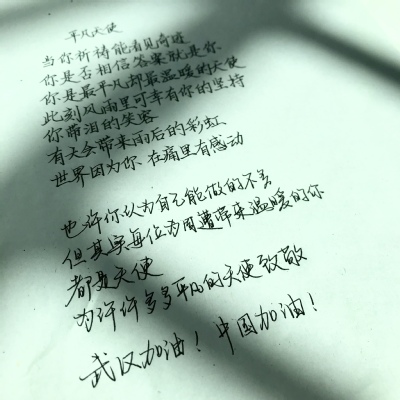 平凡天使
当你祈祷能看见奇迹
你是否相信答案就是你
你是最平凡却最温暖的天使
此刻风雨里可幸有你的坚持
你带泪的笑容
有天会带来雨后的彩虹
世界因为你 在痛里有感动
也许你认为自己能做的不多
但其实每位为周遭带来温暖的你
都是天使
为许许多多平凡的天使致敬
武汉加油！中国加油！